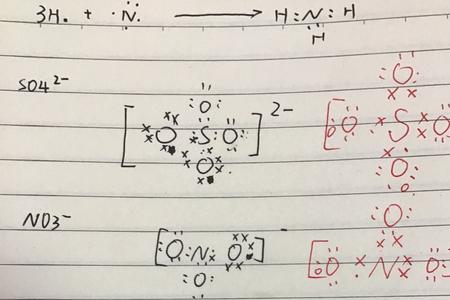 3H. + ·N̈. → H:N̈:H
H
SO4²⁻
O
[O S O]²⁻
O
O
[O S O
O
NO3⁻
[O N O]⁻
O
O
[O N O